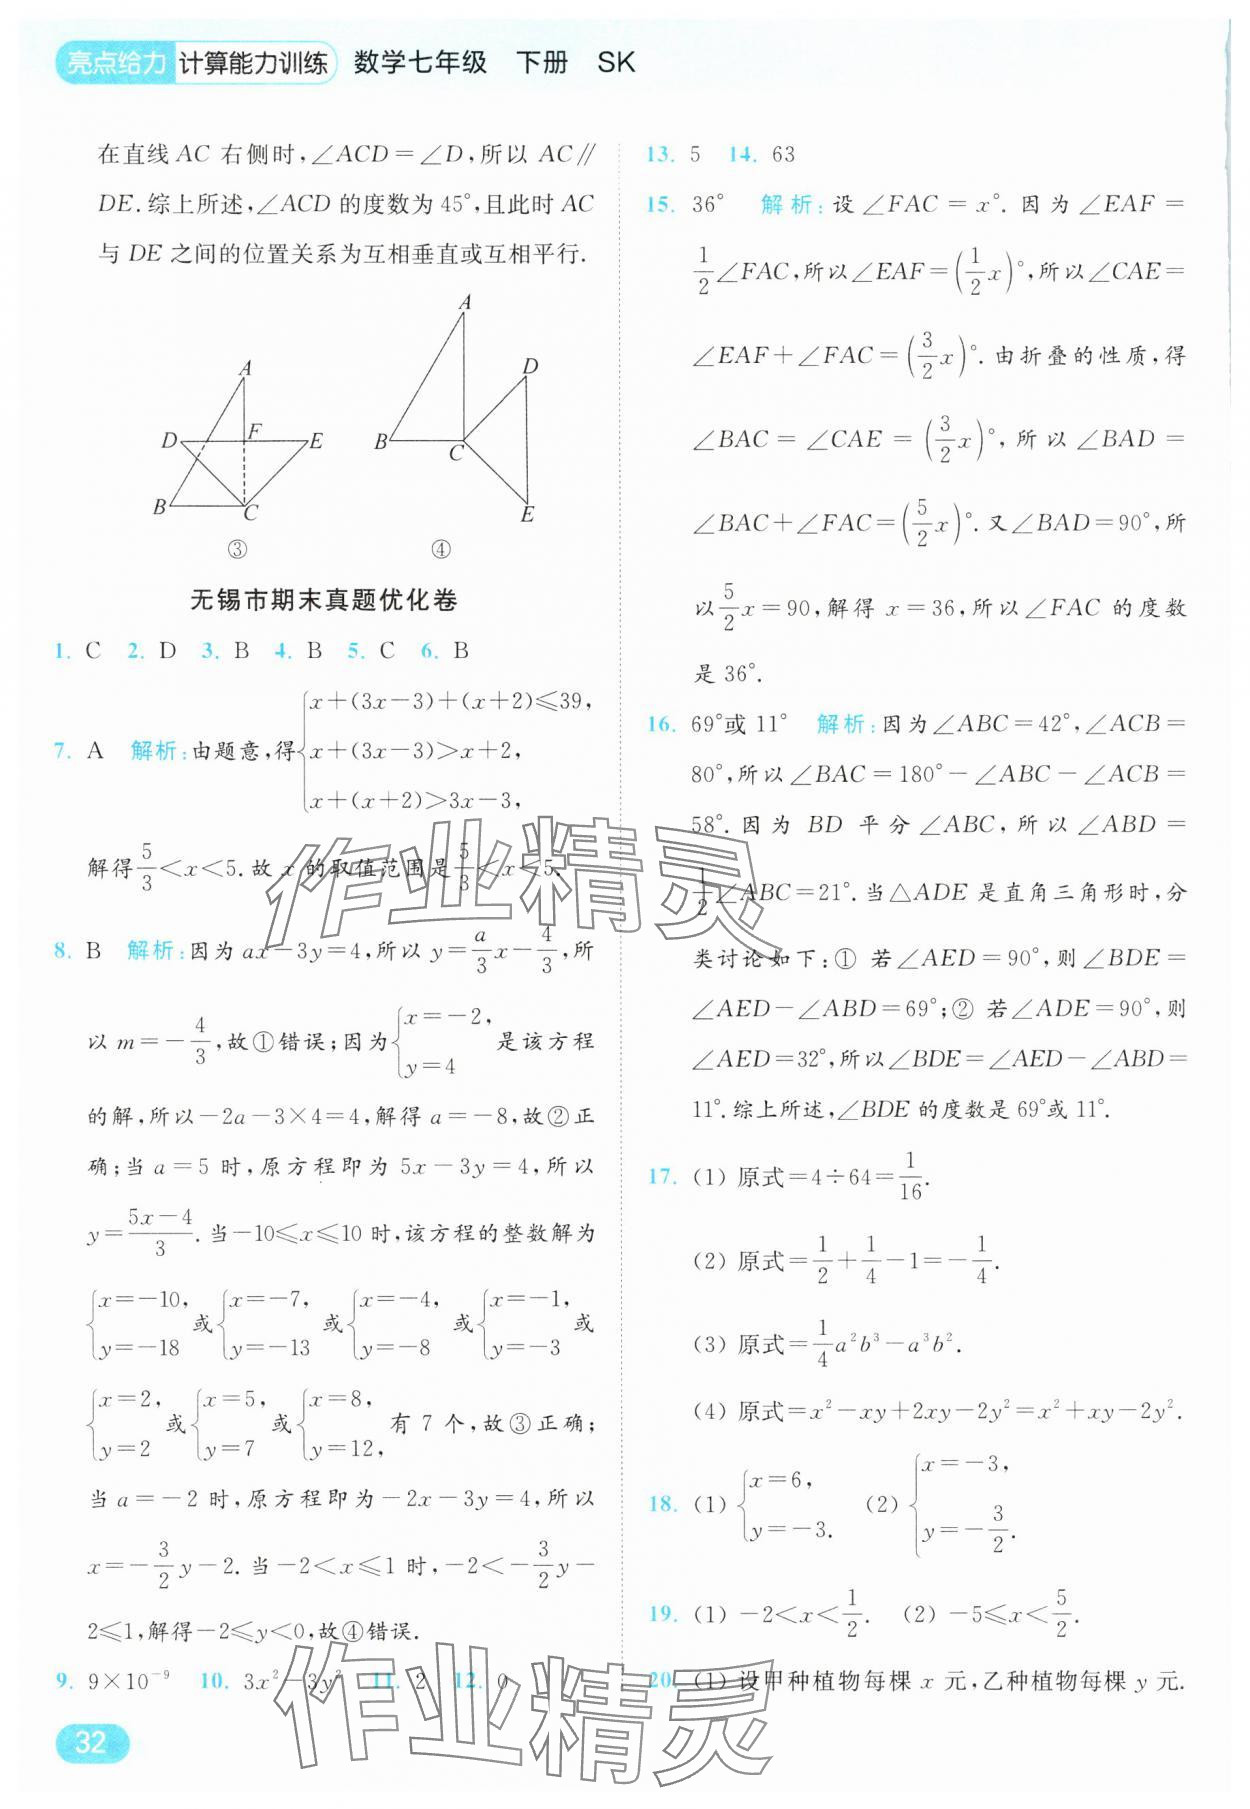 亮点给力 计算能力训练 数学七年级 下册 SK
在直线 AC 右侧时,∠ACD=∠D,所以 AC∥
DE.综上所述,∠ACD 的度数为 45°,且此时 AC
与 DE 之间的位置关系为互相垂直或互相平行.
A
D F E
B C
③
A
D
B C
E
④
无锡市期末真题优化卷
1. C 2. D 3. B 4. B 5. C 6. B
7. A 解析:由题意,得{x+(3x-3)+(x+2)≤39,
x+(3x-3)>x+2,
x+(x+2)>3x-3,
解得5/3<x<5.故 x 的取值范围是5/3<x<5.
8. B 解析:因为 ax-3y=4,所以 y=a/3x-4/3,所
以 m=-4/3,故①错误;因为{x=-2, y=4 是该方程
的解,所以-2a-3×4=4,解得 a=-8,故②正
确;当 a=5 时,原方程即为 5x-3y=4,所以
y=(5x-4)/3.当-10≤x≤10 时,该方程的整数解为
{x=-10, y=-18 或{x=-7, y=-13 或{x=-4, y=-8 或{x=-1, y=-3 或
{x=2, y=2 或{x=5, y=7 或{x=8, y=12, 有 7 个,故③正确;
当 a=-2 时,原方程即为-2x-3y=4,所以
x=-3/2y-2.当-2<x≤1 时,-2<-3/2y-
2≤1,解得-2≤y<0,故④错误.
9. 9×10⁻⁹ 10. 3x²-3y² 11. 2 12. 0
32
13. 5 14. 63
15. 36° 解析:设∠FAC=x°.因为∠EAF=
1/2∠FAC,所以∠EAF=(1/2x)°,所以∠CAE=
∠EAF+∠FAC=(3/2x)°.由折叠的性质,得
∠BAC=∠CAE=(3/2x)°,所以∠BAD=
∠BAC+∠FAC=(5/2x)°.又∠BAD=90°,所
以5/2x=90,解得 x=36,所以∠FAC 的度数
是 36°.
16. 69°或 11° 解析:因为∠ABC=42°,∠ACB=
80°,所以∠BAC=180°-∠ABC-∠ACB=
58°.因为 BD 平分∠ABC,所以∠ABD=
1/2∠ABC=21°.当△ADE 是直角三角形时,分
类讨论如下:① 若∠AED=90°,则∠BDE=
∠AED-∠ABD=69°;② 若∠ADE=90°,则
∠AED=32°,所以∠BDE=∠AED-∠ABD=
11°.综上所述,∠BDE 的度数是 69°或 11°.
17. (1) 原式=4÷64=1/16.
(2) 原式=1/2+1/4-1=-1/4.
(3) 原式=1/4a²b³-a³b².
(4) 原式=x²-xy+2xy-2y²=x²+xy-2y².
18. (1) {x=6, y=-3. (2) {x=-3, y=-3/2.
19. (1) -2<x<1/2. (2) -5≤x<5/2.
20. (1) 设甲种植物每棵 x 元,乙种植物每棵 y 元.
作业精灵
作业精灵